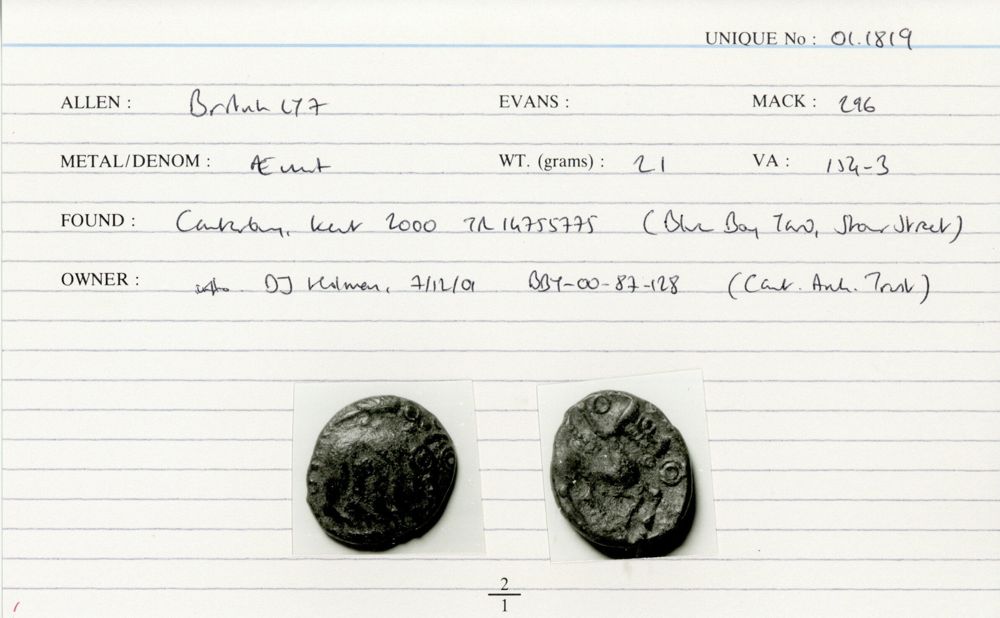 UNIQUE No : 01.1819
ALLEN : British LY7 EVANS : MACK : 296
METAL/DENOM : Æ unit WT. (grams) : 2.1 VA : 154-3
FOUND : Canterbury, Kent 2000 TR 14755775 (Blue Boy Yard, Stour Street)
OWNER : info. DJ Holman, 7/12/01 BBY-00-87-128 (Cant. Arch. Trust)
2
1